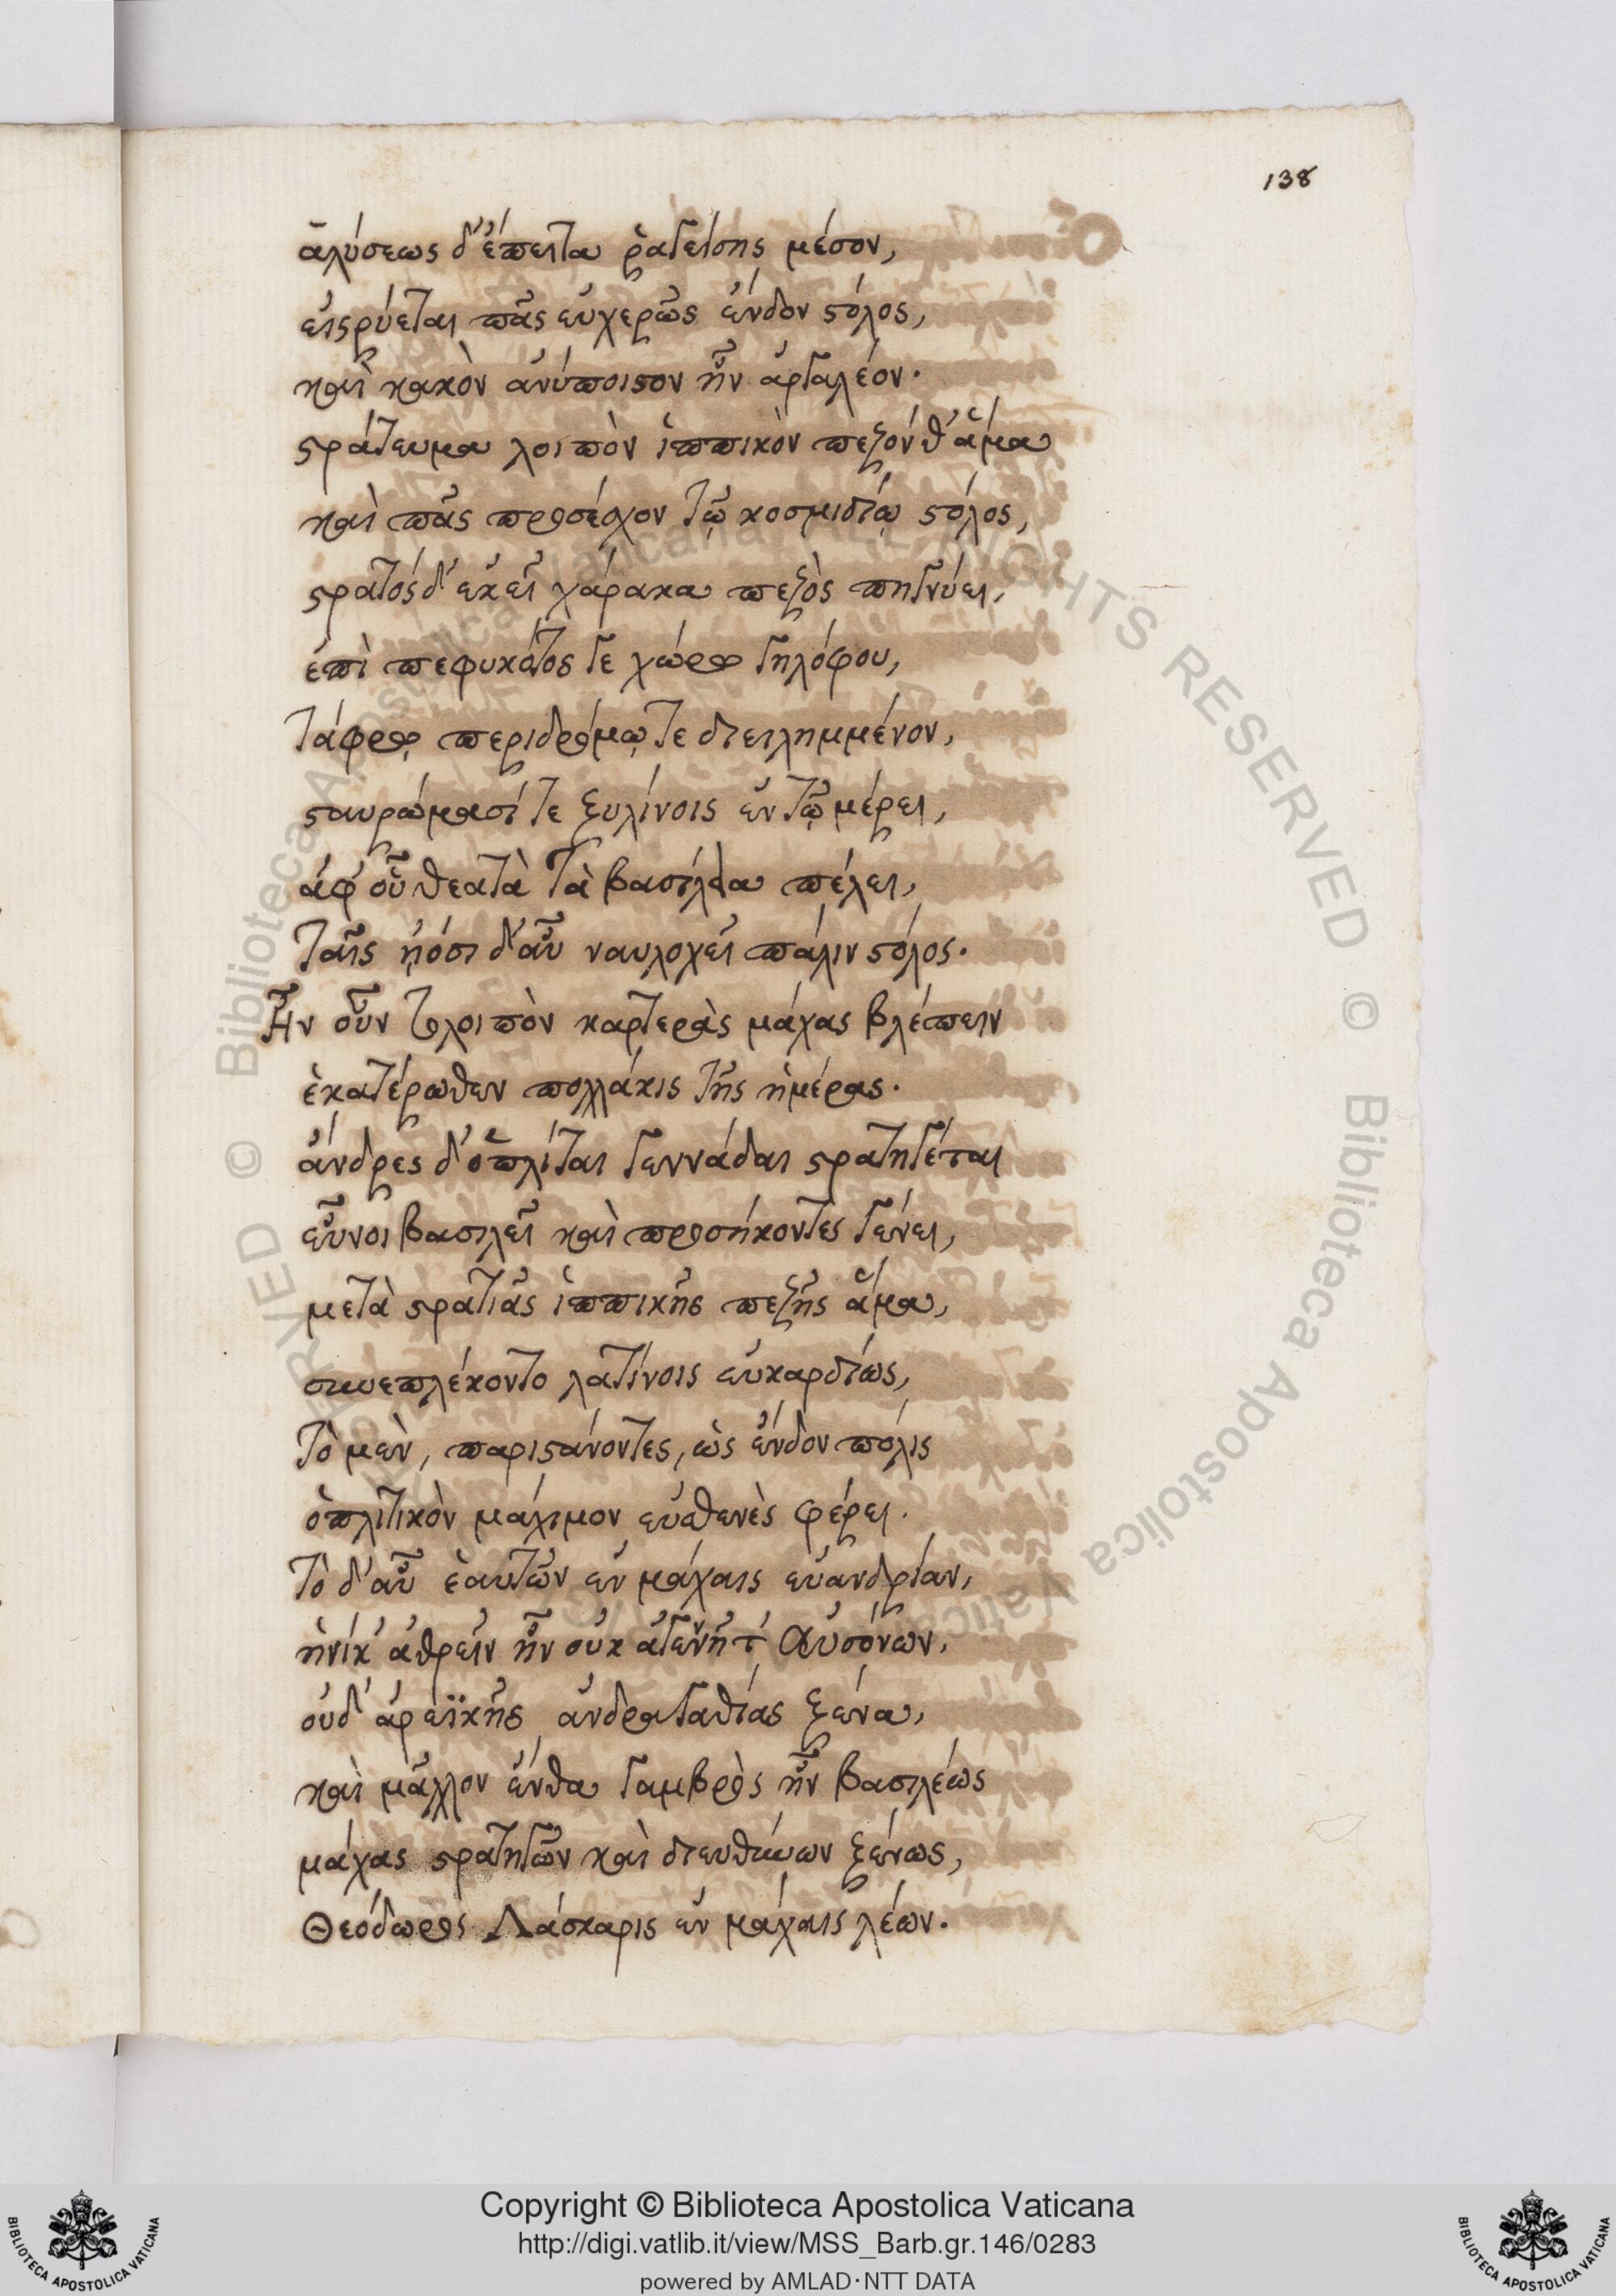 138
ἁλύσεως δ' ἔπειτα ῥαγείσης μέσον,
εἰσρύεται πᾶς εὐχερῶς ἔνδον στόλος,
καὶ κακὸν ἀνύποιστον ἦν ἀργαλέον.
στράτευμα λοιπὸν ἱππικὸν πεζόν θ' ἅμα
καὶ πᾶς προσέσχον τῷ κοσμιδίῳ στόλος,
στρατός δ' ἐκεῖ χάρακα πεζὸς πηγνύει,
ἐπὶ πεφυκότος γε χώρου γηλόφου,
τάφρῳ περιδρόμῳ τε διειλημμένον,
σταυρώμασί τε ξυλίνοις ἐν τῷ μέρει,
ἀφ' οὗ θεατὰ τὰ βασίλεια πέλει,
ταῖς ᾐόσι δ' αὖ ναυλοχεῖ πάλιν στόλος.
Ἦν οὖν τολοιπὸν καρτερὰς μάχας βλέπειν
ἑκατέρωθεν πολλάκις τῆς ἡμέρας.
ἄνδρες δ' ὁπλίται γεννάδαι στρατηγέται
εὖνοι βασιλεῖ καὶ προσήκοντες γένει,
μετὰ στρατιᾶς ἱππικῆς πεζῆς ἅμα,
συνεπλέκοντο λατίνοις εὐκαρδίως,
τὸ μὲν, παριστάνοντες, ὡς ἔνδον πόλις
ὁπλιτικὸν μάχιμον εὐσθενὲς φέρει.
τὸ δ' αὖ ἑαυτῶν ἐν μάχαις εὐανδρίαν,
ἡνίκ' ἀθρεῖν ἦν οὐκ ἀγενῆ τ' Αὐσόνων,
οὐδ' ἀρεϊκῆς ἀνδραγαθίας ξένα,
καὶ μᾶλλον ἔνθα γαμβρὸς ἦν βασιλέως
μάχας στρατηγῶν καὶ διευθύνων ξένως,
Θεόδωρος Λάσκαρις ἐν μάχαις λέων.
Copyright © Biblioteca Apostolica Vaticana
http://digi.vatlib.it/view/MSS_Barb.gr.146/0283
powered by AMLAD·NTT DATA
BIBLIOTECA APOSTOLICA VATICANA
BIBLIOTECA APOSTOLICA VATICANA